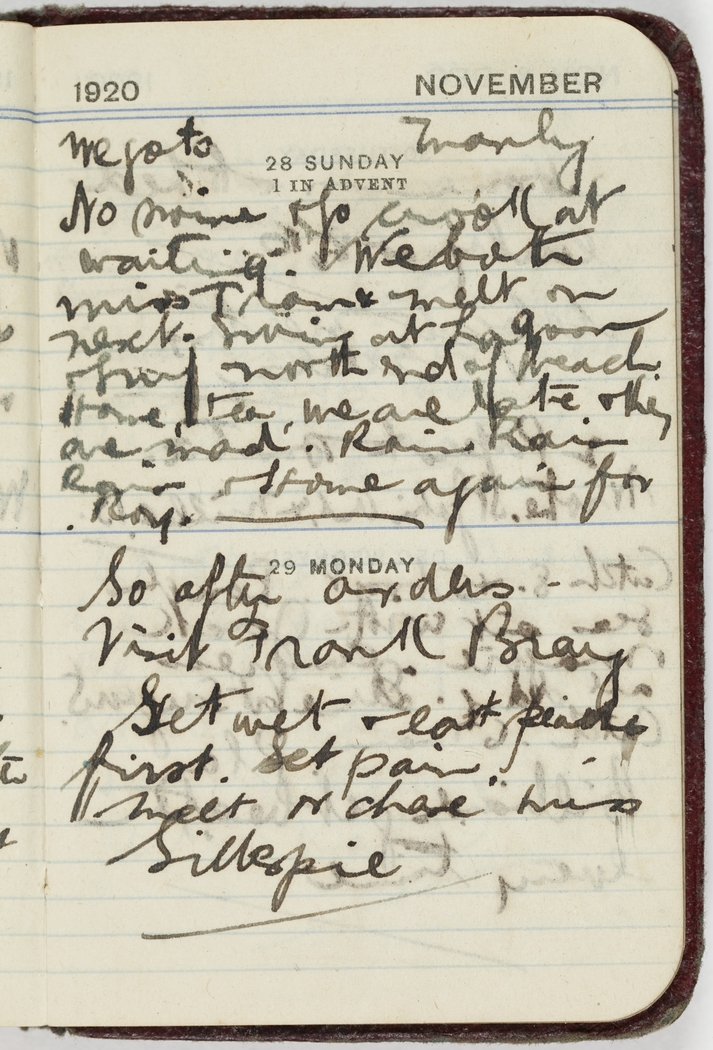 1920 NOVEMBER
We go to Manly
28 SUNDAY
1 IN ADVENT
No at
waiting. We both
miss Tram & melt on
next. Swim at Lagoon
north end of beach.
Home, tea, we are late & they
are mad. Rain Rain
Rain & Home again for
Roy.
29 MONDAY
Go after orders -
Visit Frank Bray
Get wet & eat
first. Get pain.
Meet or chase Miss
Gillespie